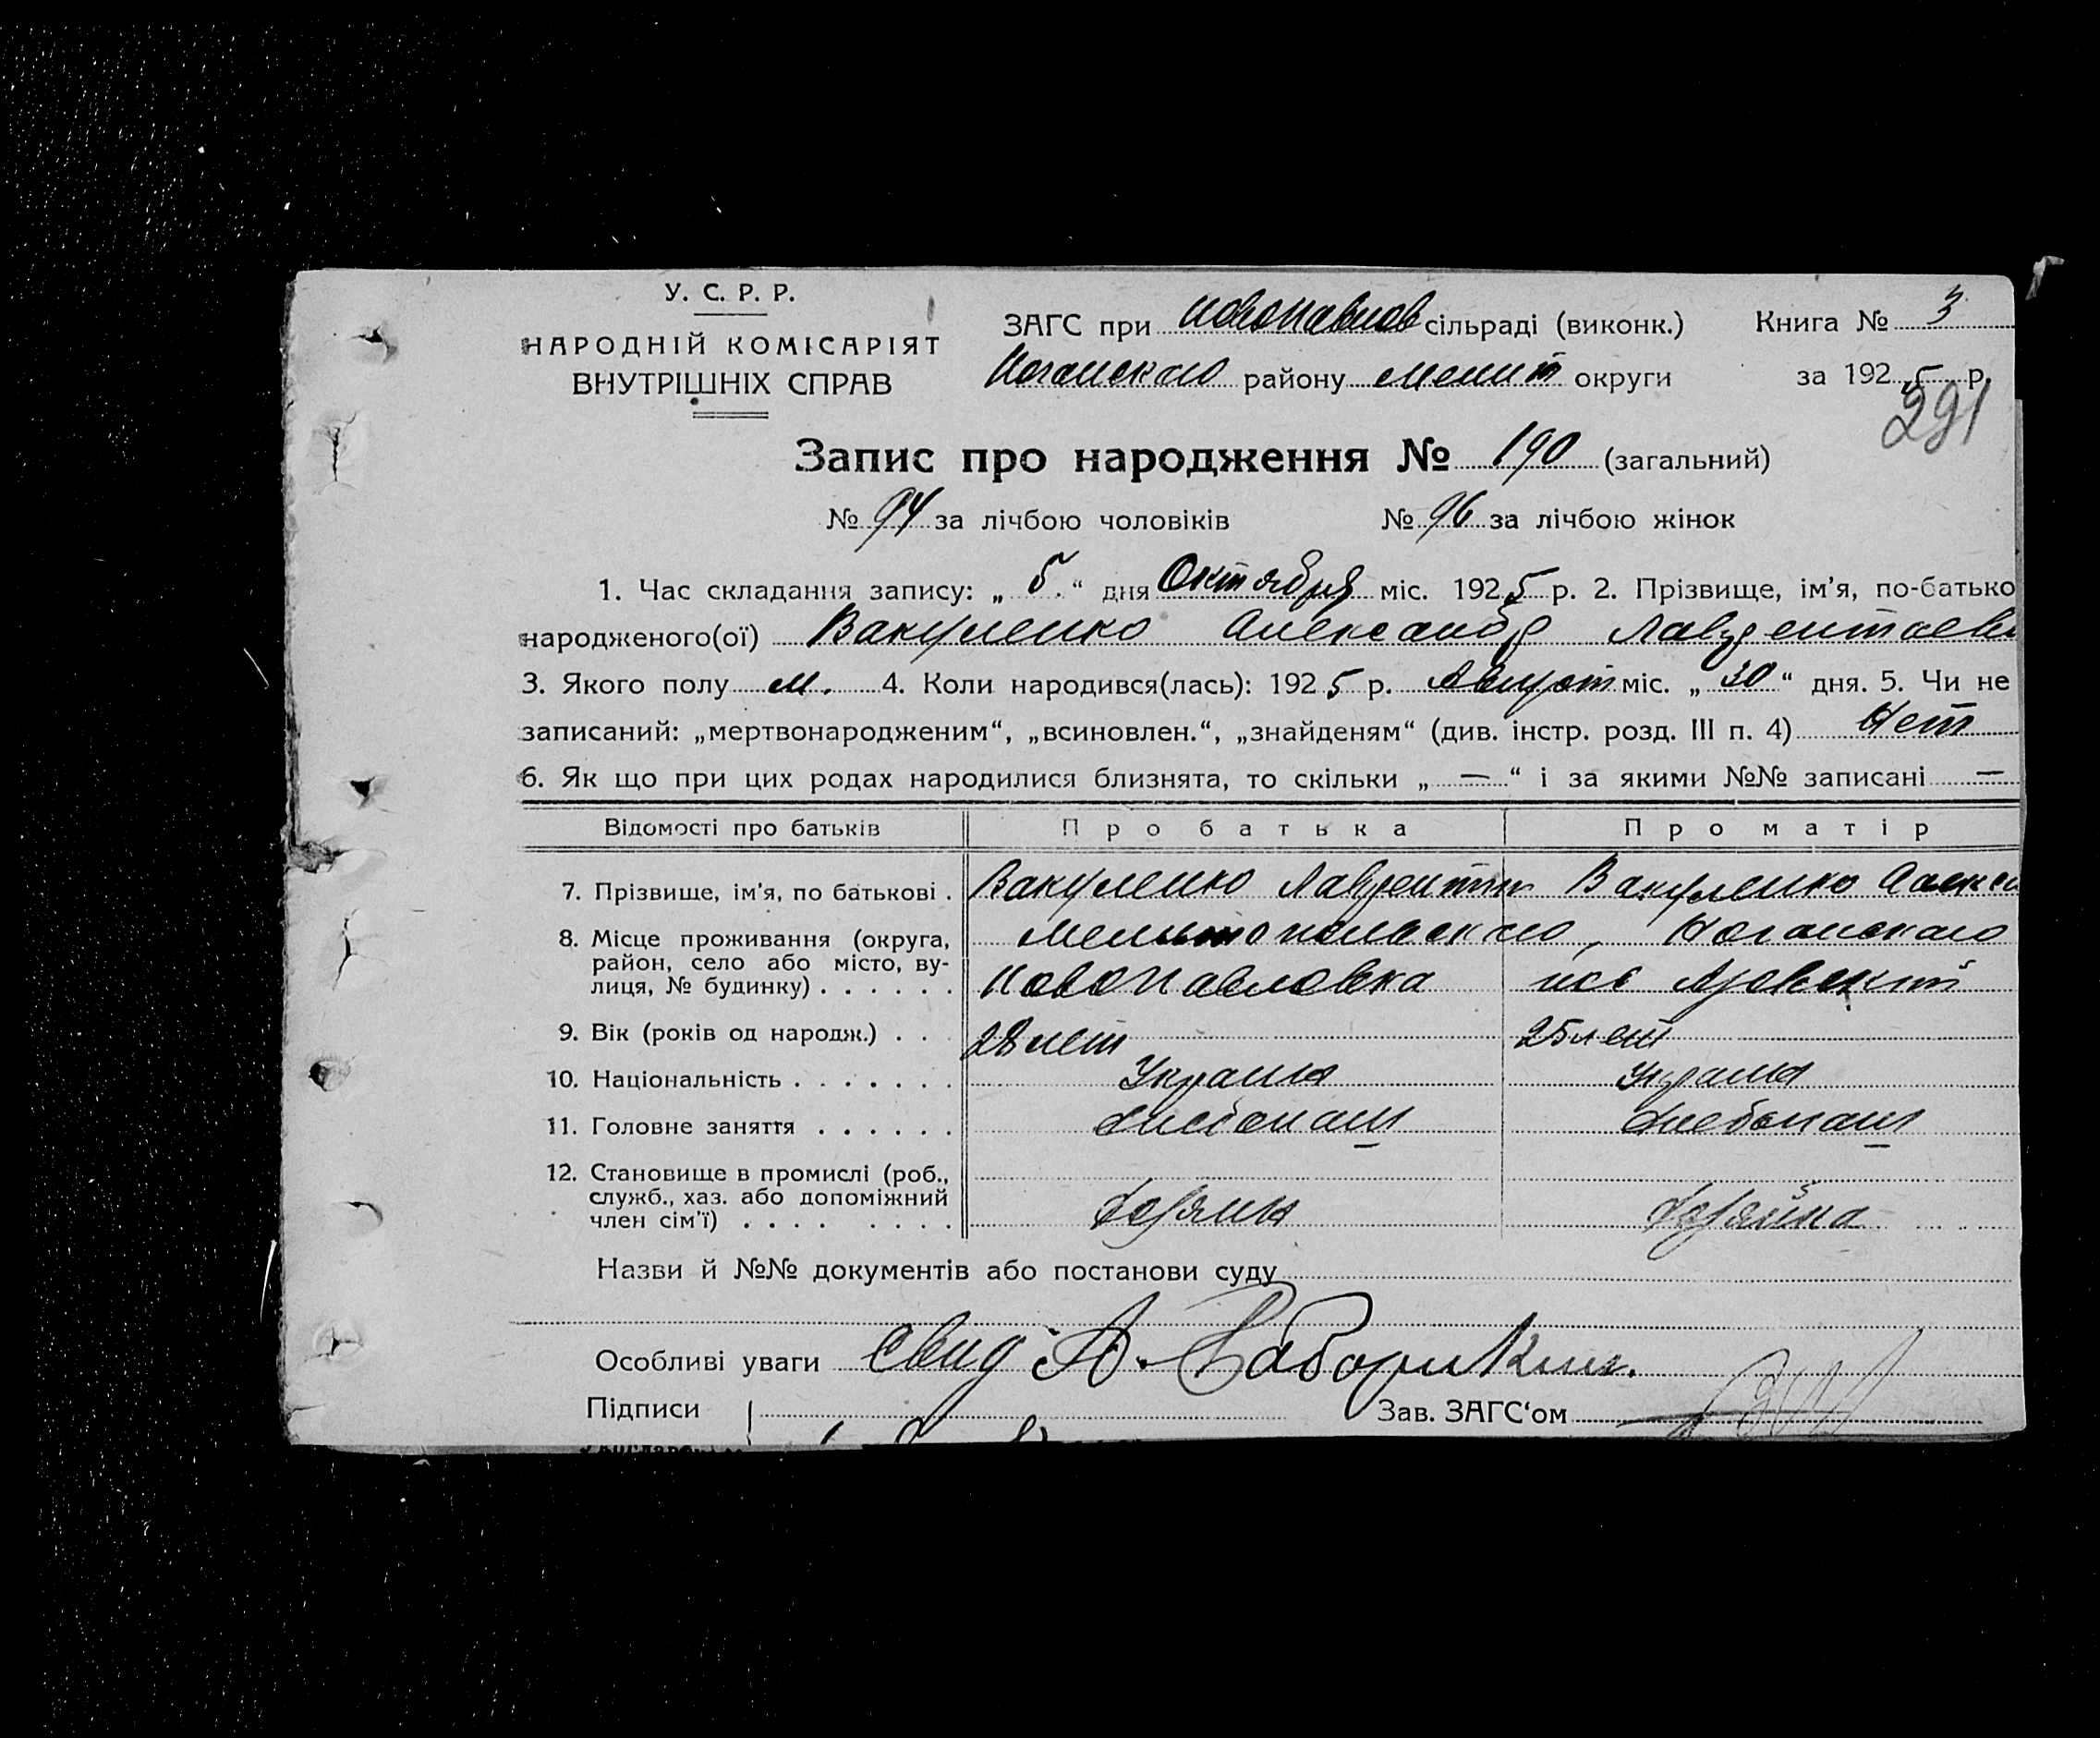 У. С. Р. Р.
НАРОДНІЙ КОМІСАРІЯТ
ВНУТРІШНІХ СПРАВ
ЗАГС при Новопавлов сільраді (виконк.) Книга № 3
Ногайскаго району Мелит округи за 1925 р.
291
Запис про народження № 190 (загальний)
№ 94 за лічбою чоловіків № 96 за лічбою жінок
1. Час складання запису: „ 5 “ дня Октября міс. 1925 р. 2. Прізвище, ім'я, по-батько
народженого(ої) Вакуленко Александр Лаврентьеви
3. Якого полу м. 4. Коли народився(лась): 1925 р. Август міс. „ 30 “ дня. 5. Чи не
записаний: „мертвонародженим“, „всиновлен.“, „знайденям“ (див. інстр. розд. III п. 4) Нет
6. Як що при цих родах народилися близнята, то скільки „ — “ і за якими №№ записані —
Відомості про батьків Про батька Про матір
7. Прізвище, ім'я, по батькові . Вакуленко Лаврентий Вакуленко Алекса
8. Місце проживання (округа, Мелитопольскаго, Ногайскаго
район, село або місто, ву-
лиця, № будинку) . . . . . . Новопавловка
9. Вік (років од народж.) . . . 28 лет 25 лет
10. Національність . . . . . . . Украин Украин
11. Головне заняття . . . . . . Хлебопаш Хлебопаш
12. Становище в промислі (роб.,
служб., хаз. або допоміжний
член сім'ї) . . . . . . . . Хозяин Хозяйка
Назви й №№ документів або постанови суду
Особливі уваги Свид А.
Підписи Зав. ЗАГС‘ом